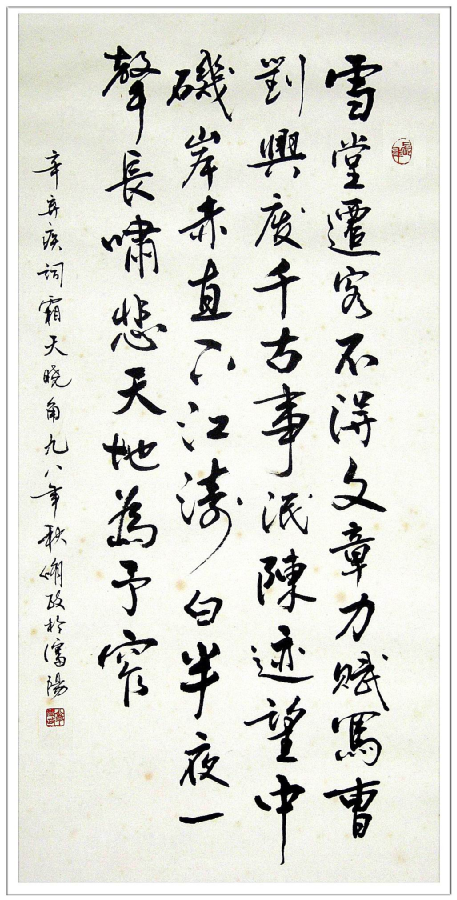 雪堂遷客不得文章力賦寫曹
劉興废千古事泯陳迹望中
磯岸赤直下江濤白半夜一
聲長嘯悲天地為予窄
辛弃疾詞霜天晓角九八年秋政於瀋陽